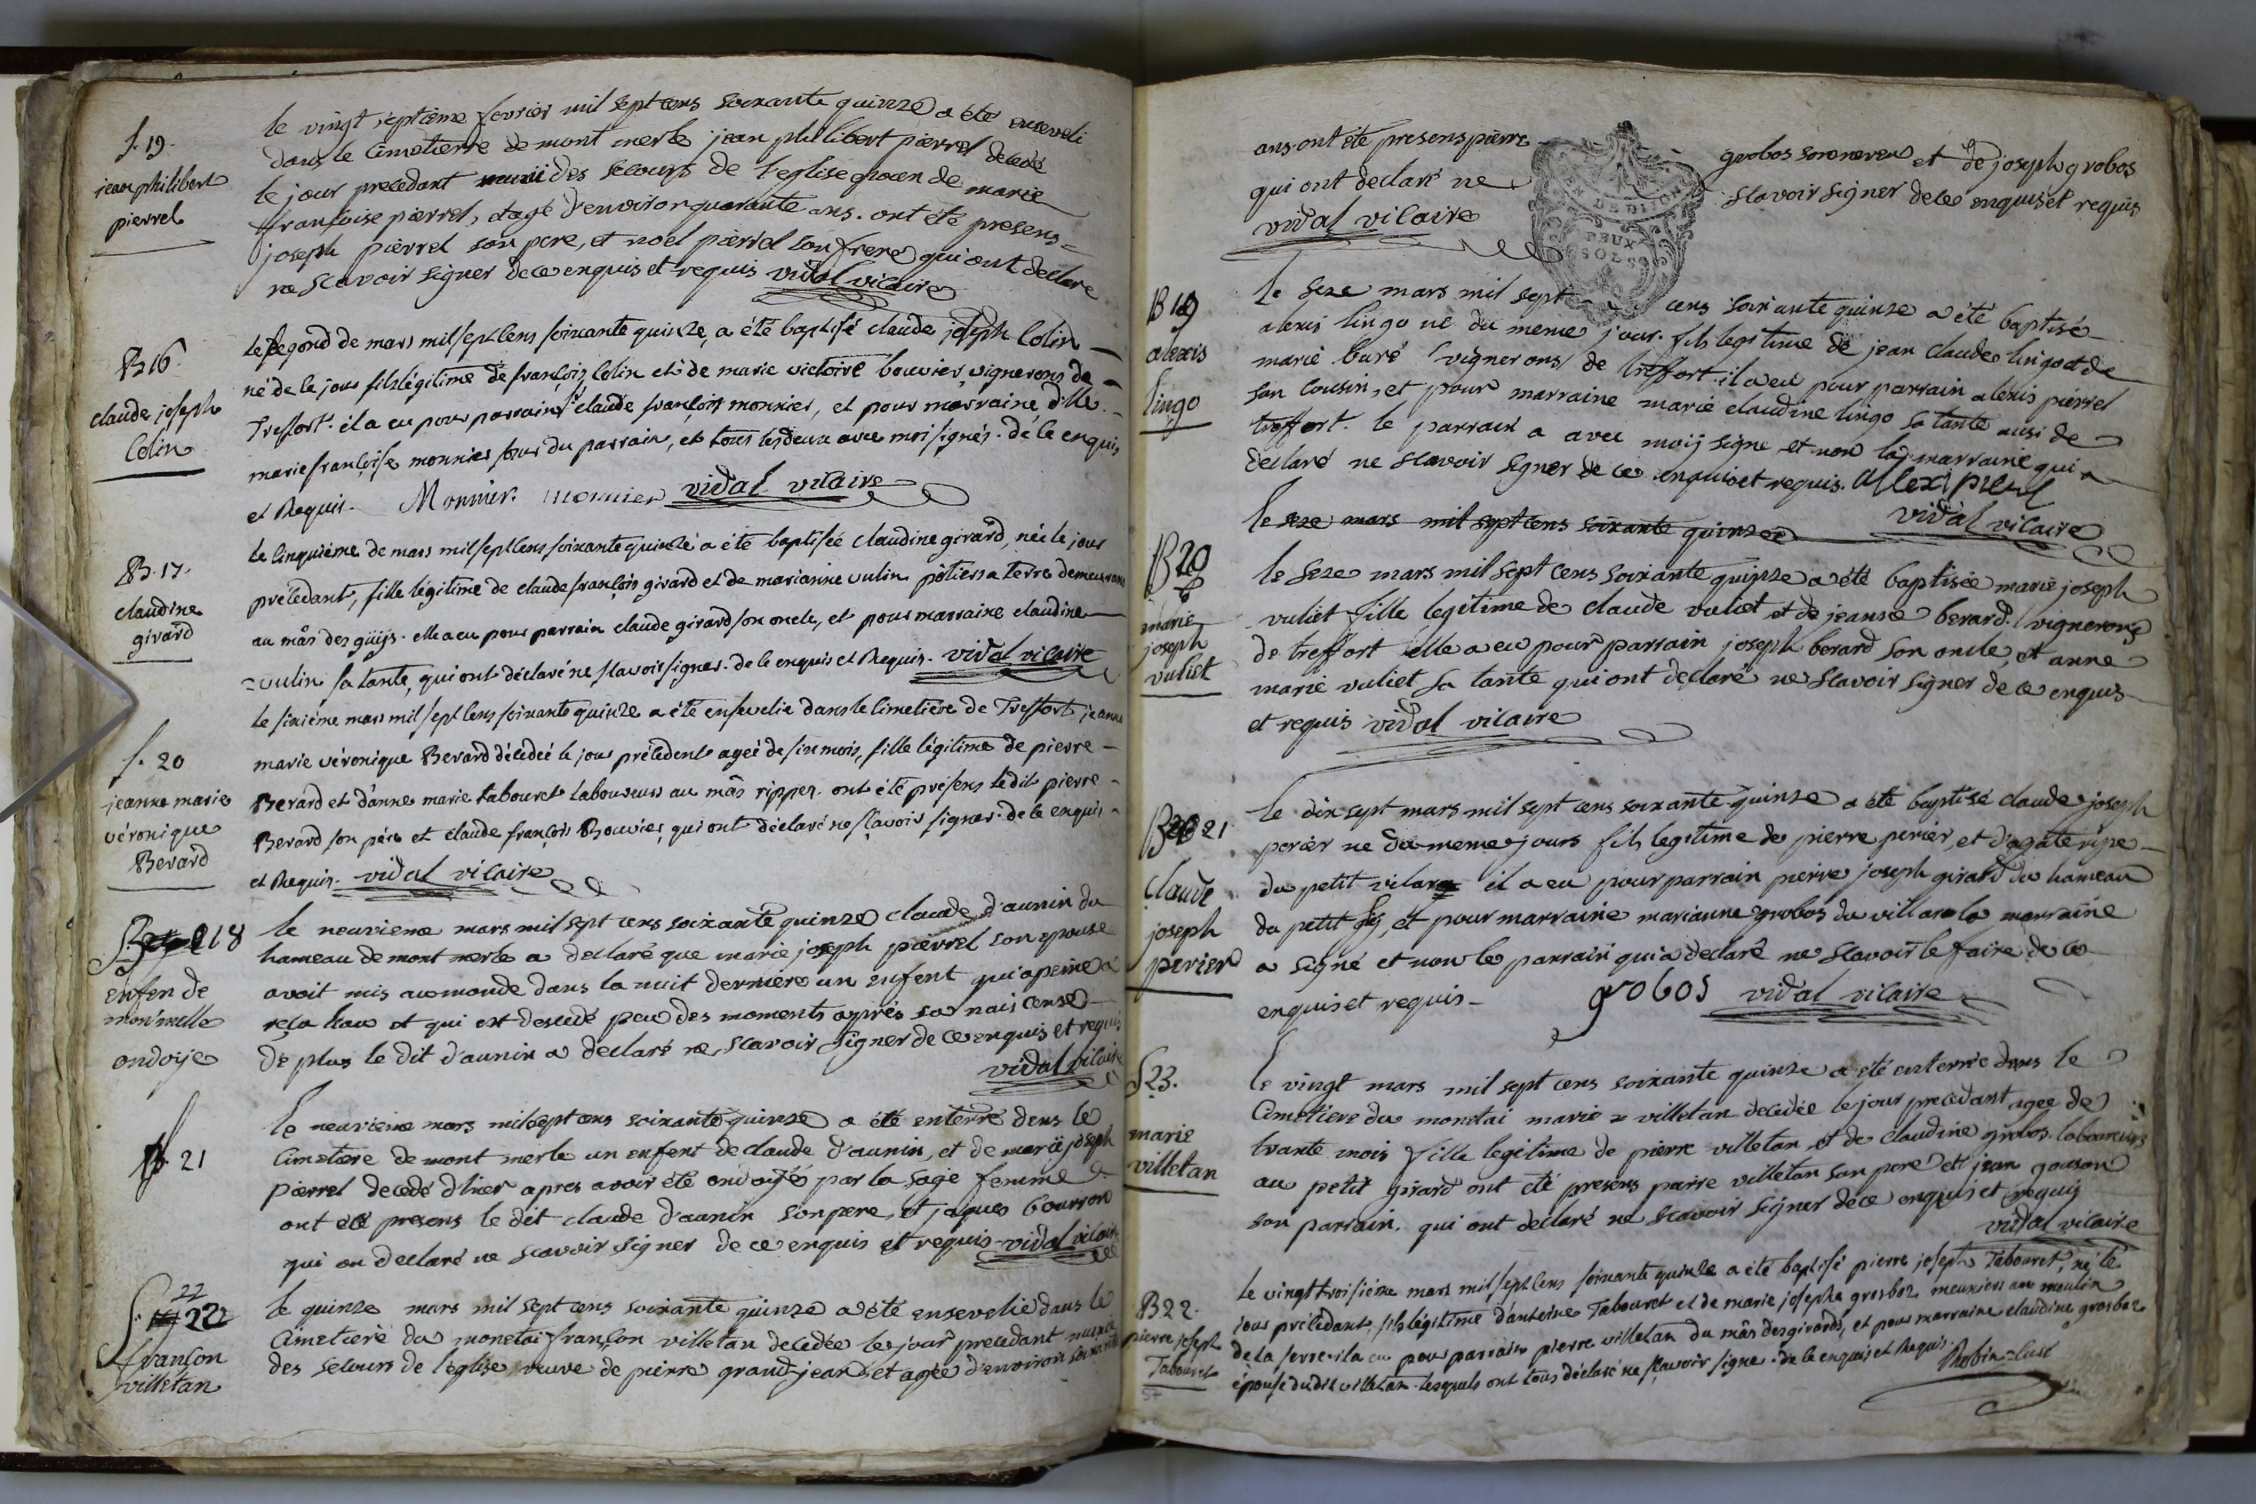 S. 19.
jean philibert
pierrel
le vingt septieme fevrier mil sept cens soixante quinze a été enseveli
dans le cimetierre de mont merle jean philibert pierrel decedé
le jour precedant muni des secours de l'eglise epoux de marie
françoise pierrel, et agé d'environ quarante ans. ont été presens
joseph pierrel son pere, et noel pierrel son frere qui ont declaré
ne scavoir signer de ce enquis et requis vidal vicaire
B 16.
claude joseph
Colin
le segond de mars mil sept cens soixante quinze, a été baptisé claude joseph Colin
né de le jour fils légitime de françois Colin et de marie victoire bouvier vignerons de
Treffort. il a eu pour parrain Sr claude françois monnier, et pour marraine dlle
marie françoise monnier sœur du parrain, et tous les deux avec moi signés. de ce enquis
et Requis. Monnier. monnier vidal vicaire
B. 17.
claudine
girard
le cinquième de mars mil sept cens soixante quinze a été baptisée claudine girard, née le jour
précédant, fille légitime de claude françois girard et de marianne vulin pôtiers a terre demeurans
au mâs des guijs. elle a eu pour parrain claude girard son oncle, et pour marraine claudine
vulin sa tante, qui ont déclaré ne scavoir signer. de ce enquis et Requis. vidal vicaire
S. 20
jeanne marie
véronique
Berard
le sixiéme mars mil sept cens soixante quinze a été ensevelie dans le cimetiére de Treffort jeanne
marie véronique Berard décédée le jour précédent agée de six mois, fille légitime de pierre
Berard et d'anne marie tabouret laboureurs au mâs ripper. ont été présens ledit pierre
Berard son pére et claude françois Bouvier, qui ont déclaré ne sçavoir signer. de ce enquis
et Requis. vidal vicaire
B 18
enfen de
mon merlle
ondoije
le neuvieme mars mil sept cens soixante quinze claude d'aunin du
hameau de mont merle a declaré que marie joseph pierrel son epouse
avoit mis au monde dans la nuit derniere un enfent qui apeine a
reçu l'eau et qui est descedé peu des moments après sa naiscense
de plus le dit d'aunin a declaré ne scavoir signer de ce enquis et requis
vidal vicaire
S. 21
le neuvieme mars mil sept cens soixante quinze a été enterré dens le
cimetiere de mont merle un enfent de claude d'aunin, et de marie joseph
pierrel decedé d'hier apres avoir été ondoijé par la sage femme
ont été presens le dit claude d'aunin son pere, et jaques bourron
qui on declaré ne scavoir signer de ce enquis et requis vidal vicaire
22
S. 22
françon
villetan
le quinze mars mil sept cens soixante quinze a été ensevelie dans le
cimetiere du monetai françon villetan decedée le jour precedant munie
des secours de l'eglise veuve de pierre grand jean et agée d'environ soixante
ans. ont été presens pierre grobos son neveu et de joseph grobos
qui ont declaré ne scavoir signer de ce enquis et requis
vidal vicaire
EN DE DIJON
DEUX
SOLS
B 19
alexis
lingo
le seze mars mil sept cens soixante quinze a été baptisé
alexis lingo né du meme jour. fils legitime de jean claude lingo et de
marie buré vignerons de treffort. il a eu pour parrain alexis pierrel
son cousin, et pour marraine marie claudine lingo sa tante ausi de
treffort. le parrain a avec moij signé et non la marraine qui a
declaré ne scavoir signer de ce enquis et requis. alexi pierel
vidal vicaire
le seze mars mil sept cens soixante quinze
B 20
marie
joseph
vuliet
le seze mars mil sept cens soixante quinze a été baptisée marie joseph
vuliet fille legitime de claude vuliet et de jeanne berard. vignerons
de treffort elle a eu pour parrain joseph berard son oncle, et anne
marie vuliet sa tante qui ont declaré ne scavoir signer de ce enquis
et requis vidal vicaire
B 21.
Claude
joseph
perier
le dix sept mars mil sept cens soixante quinze a été baptisé claude joseph
perier ne du meme jours fils legitime de pierre perier, et d'agate ripe
du petit vilar il a eu pour parrain pierre joseph girard du hameau
du petit, et pour marraine marianne grobos du villar la marraine
a signé et non le parrain qui a declaré ne scavoir le faire de ce
enquis et requis - grobos vidal vicaire
S 23.
marie
villetan
le vingt mars mil sept cens soixante quinze a été enterrée dans le
cimetiere du monetai marie villetan decedée le jour precedant agee de
trante mois fille legitime de pierre villetan et de claudine grobos laboureurs
au petit girard ont été presens pierre villetan son pere et jean gouson
son parrain. qui ont declaré ne scavoir signer de ce enquis et requis
vidal vicaire
B 22.
pierre joseph
Tabouret
le vingt troisiéme mars mil sept cens soixante quinze a été baptisé pierre joseph Tabouret, né le
jour précédant, fils légitime d'antoine Tabouret et de marie josephe grosboz meuniers au moulin
de la serre. il a eu pour parrain pierre villetan du mâs des girards, et pour marraine claudine grosboz
épouse dudit villetan. lesquels ont tous déclaré ne sçavoir signer. de ce enquis et Requis. Robin curé